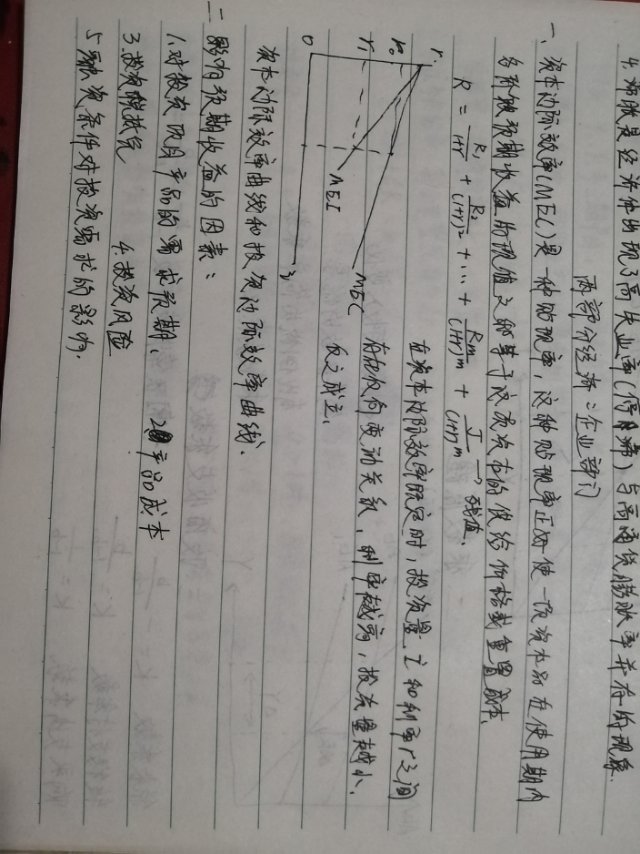 4. 滞胀是经济体出现了高失业率(停滞)与高通货膨胀率并存的现象.
两部分经济:企业部门
一、资本边际效率(MEC)是一种贴现率,这种贴现率正好使一项资本品在使用期内
各种预期收益的现值之和等于这项资本的供给价格或重置成本.
R = R₁/(1+r) + R₂/(1+r)² + … + Rₘ/(1+r)ᵐ + J/(1+r)ᵐ → 残值.
在资本边际效率既定时,投资量 i 和利率 r 之间
存在反向变动关系,利率越高,投资量越小.
反之成立.
r
r₀
r₁
0
MEI
MEC
i
资本边际效率曲线和投资边际效率曲线.
二 影响预期收益的因素:
1.对投资项目产品的需求预期、 2 产品成本
3.投资税抵免 4.投资风险
5 融资条件对投资需求的影响.